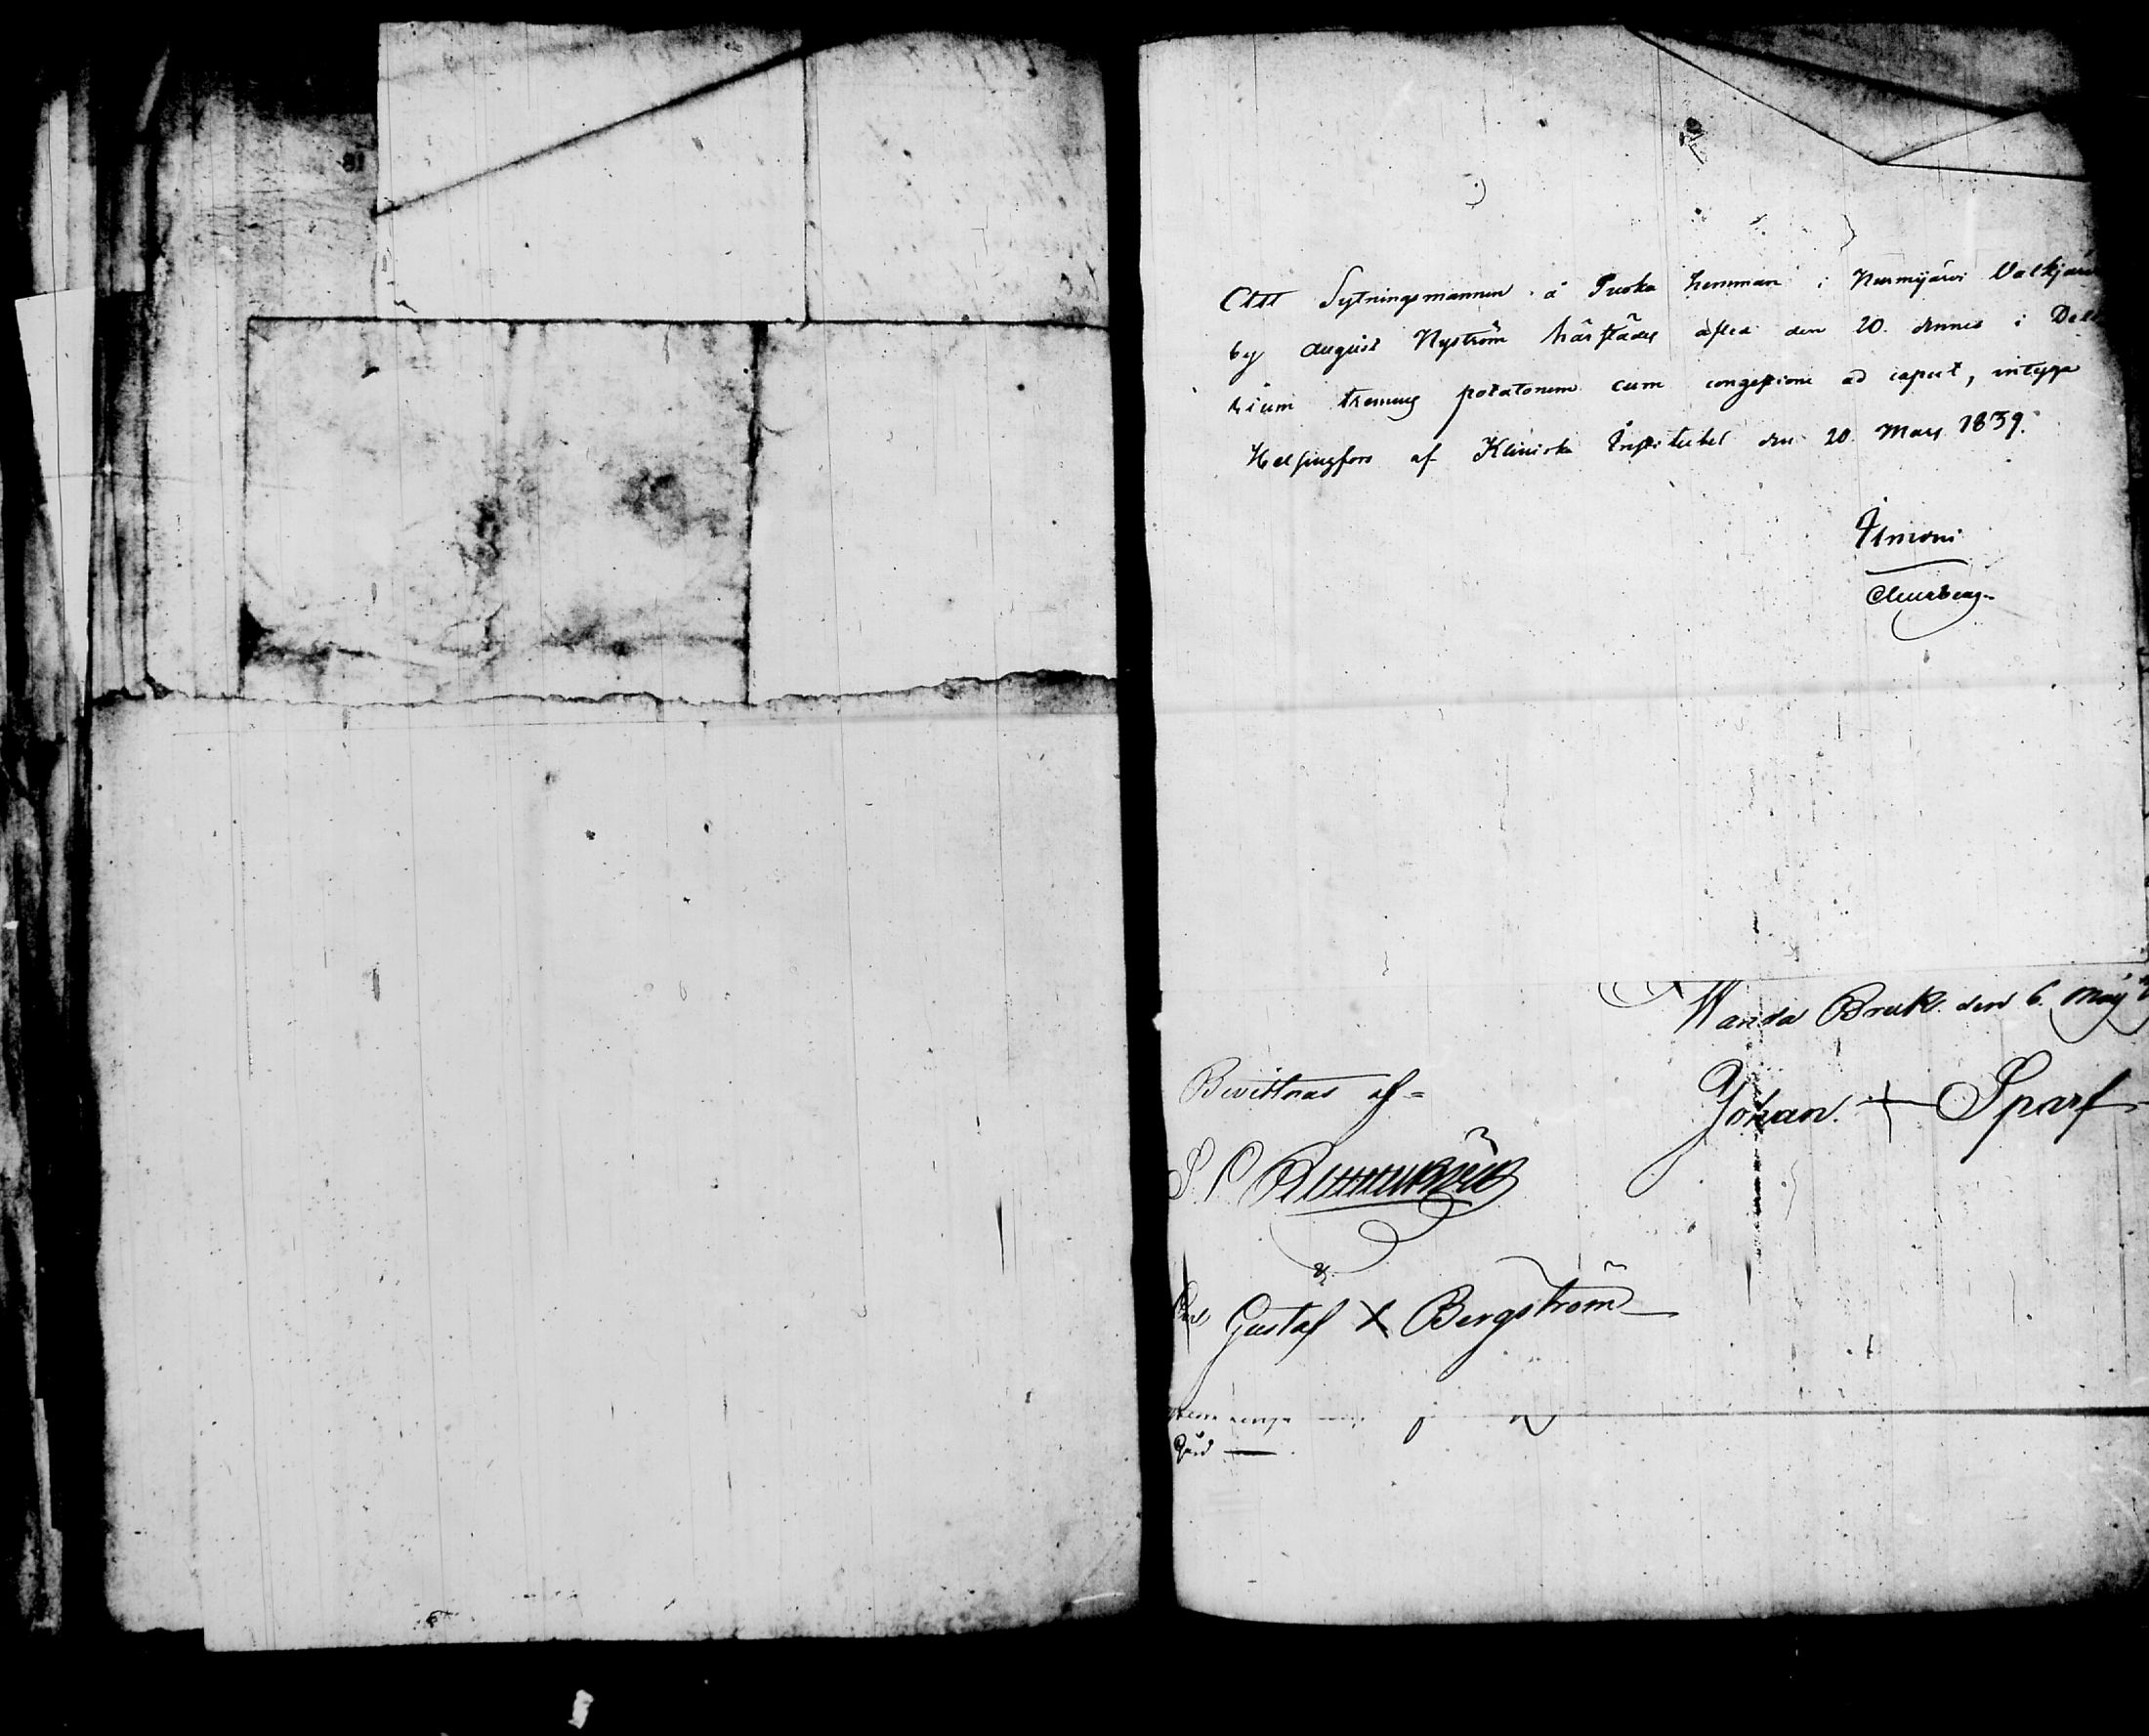 Att Sytningsmannen å Puoka hemman i Nurmijärvi Valkjärvi
by August Nyström härstädes afled den 20. dennes i Deli
rium tremens potatorum cum congestione ad caput, intyga
Helsingfors af Kliniska Institutet den 20 Maij 1839.
Ilmoni
Wanda Bruk den 6. Maij
Bevittnas af =
Johan + Sparf
S. C.
&
Gustaf X Bergström
Gård